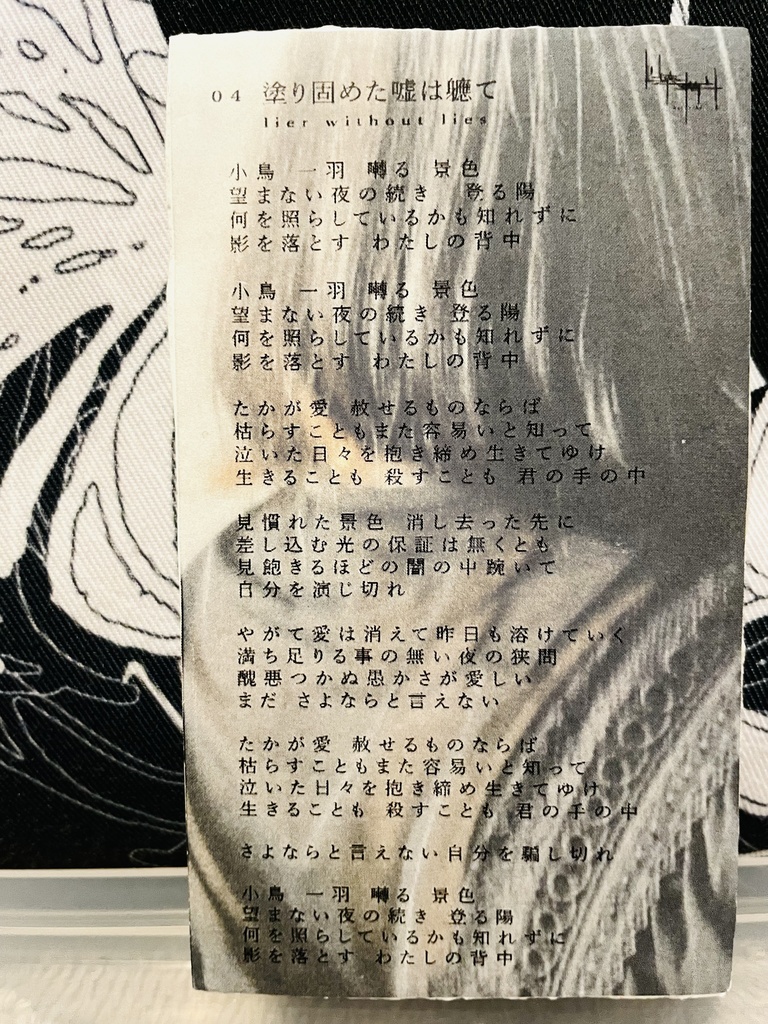 04 塗り固めた嘘は軈て
lier without lies
小鳥 一羽 囀る 景色
望まない夜の続き 登る陽
何を照らしているかも知れずに
影を落とす わたしの背中
小鳥 一羽 囀る 景色
望まない夜の続き 登る陽
何を照らしているかも知れずに
影を落とす わたしの背中
たかが愛 赦せるものならば
枯らすこともまた容易いと知って
泣いた日々を抱き締め生きてゆけ
生きることも 殺すことも 君の手の中
見慣れた景色 消し去った先に
差し込む光の保証は無くとも
見飽きるほどの闇の中踠いて
自分を演じ切れ
やがて愛は消えて昨日も溶けていく
満ち足りる事の無い夜の狭間
醜悪つかぬ愚かさが愛しい
まだ さよならと言えない
たかが愛 赦せるものならば
枯らすこともまた容易いと知って
泣いた日々を抱き締め生きてゆけ
生きることも 殺すことも 君の手の中
さよならと言えない自分を騙し切れ
小鳥 一羽 囀る 景色
望まない夜の続き 登る陽
何を照らしているかも知れずに
影を落とす わたしの背中